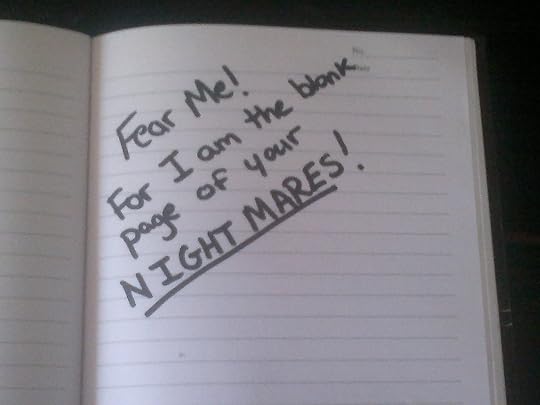 Fear Me!
For I am the blank
page of your
NIGHT MARES!